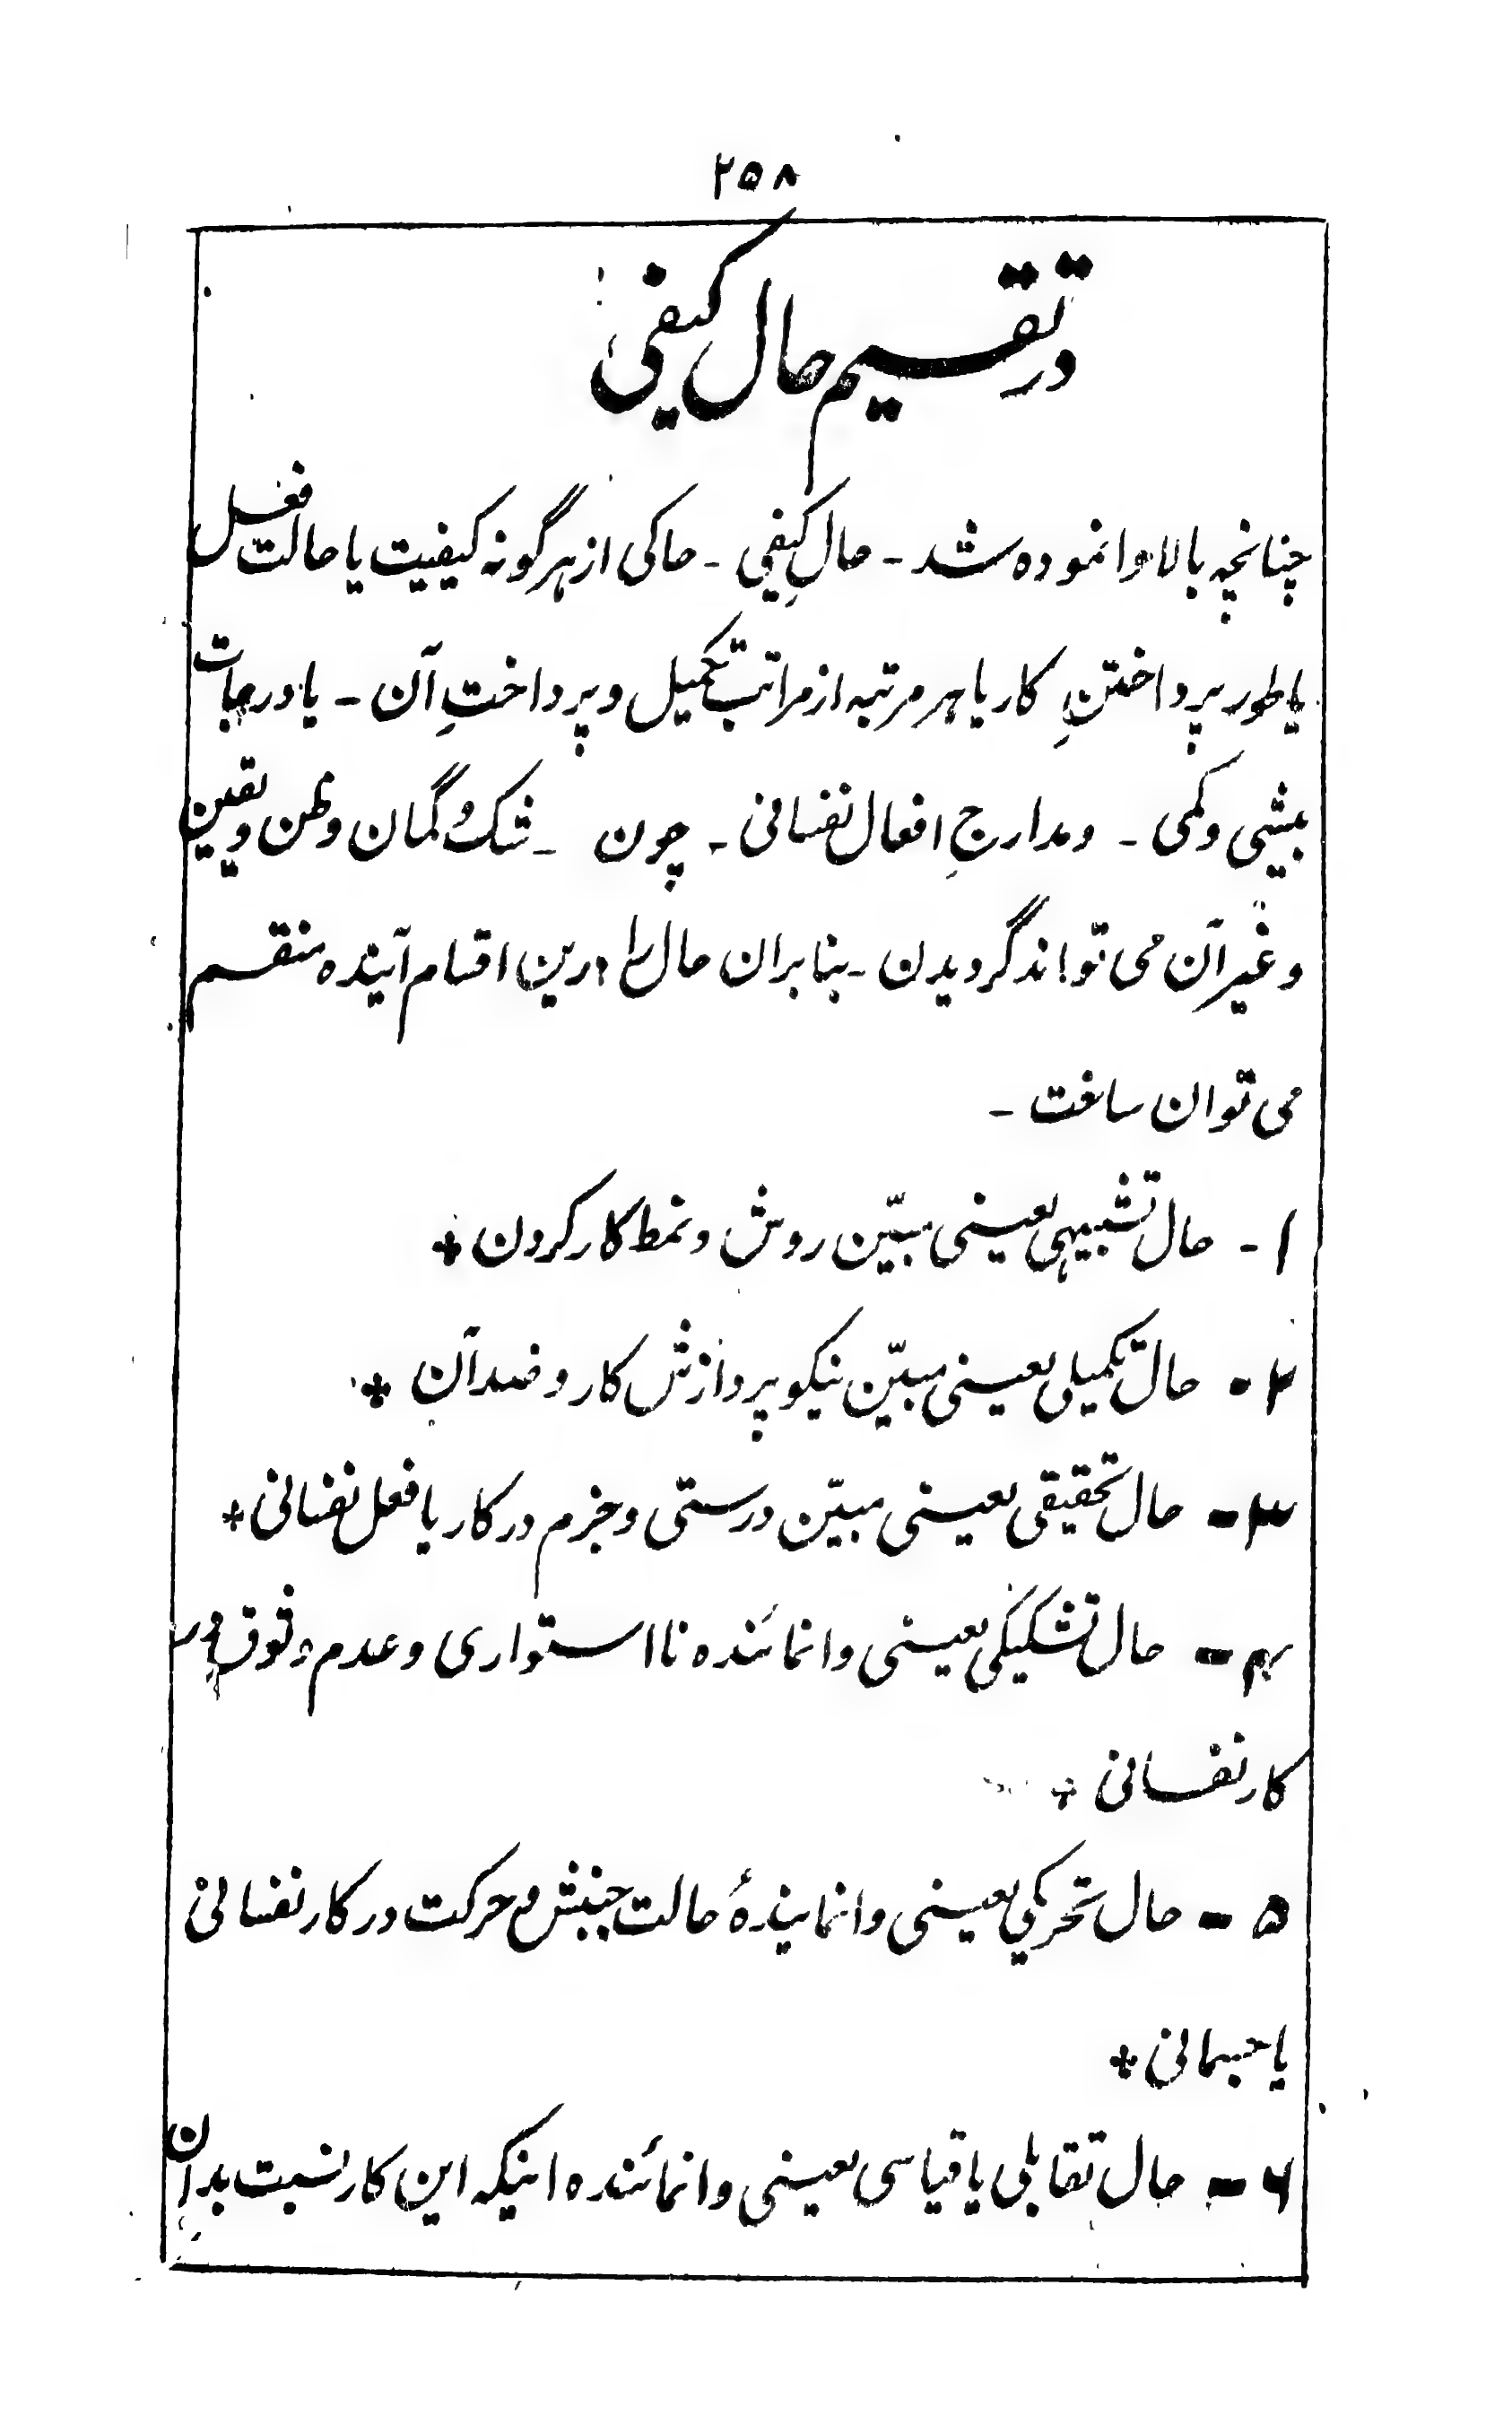 ۲۵۸
در تقسیم حال کیفی
چنانچه بالا وانموده شد ـ حالِ کیفی ـ حاکی از هر گونه کیفیت یا حالت فعل
یا طور پرداختنِ کار یا هر مرتبه از مراتب تکمیل و پرداختِ آن ـ یا درجات
بیشی و کمی ـ و مدارجِ افعال نفسانی ـ چون ـ شک و گمان و ظن و یقین
و غیر آن می تواند گردیدن ـ بنابران حال را درین اقسام آینده منقسم
می توان ساخت ـ
۱ ـ حال تشبیهی یعینی مبیّن روش و نمط کار کردن *
۲ ـ حال تکمیلی یعینی مبیّن نیکو پردازش کار و ضد آن *
۳ ـ حال تحقیقی یعینی مبیّن درستی و جزم در کار یا فعل نفسانی *
۴ ـ حال تشکیکی یعینی وانمائنده نااستواری و عدم وثوق در
کار نفسانی *
۵ ـ حال تحریکی یعینی وانمایندهٔ حالت جنبش و حرکت در کار نفسانی
یا جسمانی *
۶ ـ حال تقابلی یا قیاسی یعینی وانمائنده اینکه این کار نسبت بدان